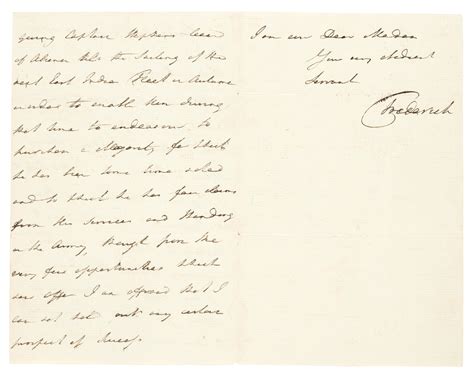 giving Captain Hopkins leave
of Absence till the Sailing of the
next East India Fleet in Autumn
in order to enable him during
that time to endeavour to
purchase a Majority for which
he has been some time noted
and to which he has fair claims
from his Services and Standing
in the Army, But from the
very few opportunities which
now offer I am afraid that I
can not hold out any certain
prospect of success.
I am ever Dear Madam
Your very obedient
Servant
Frederick